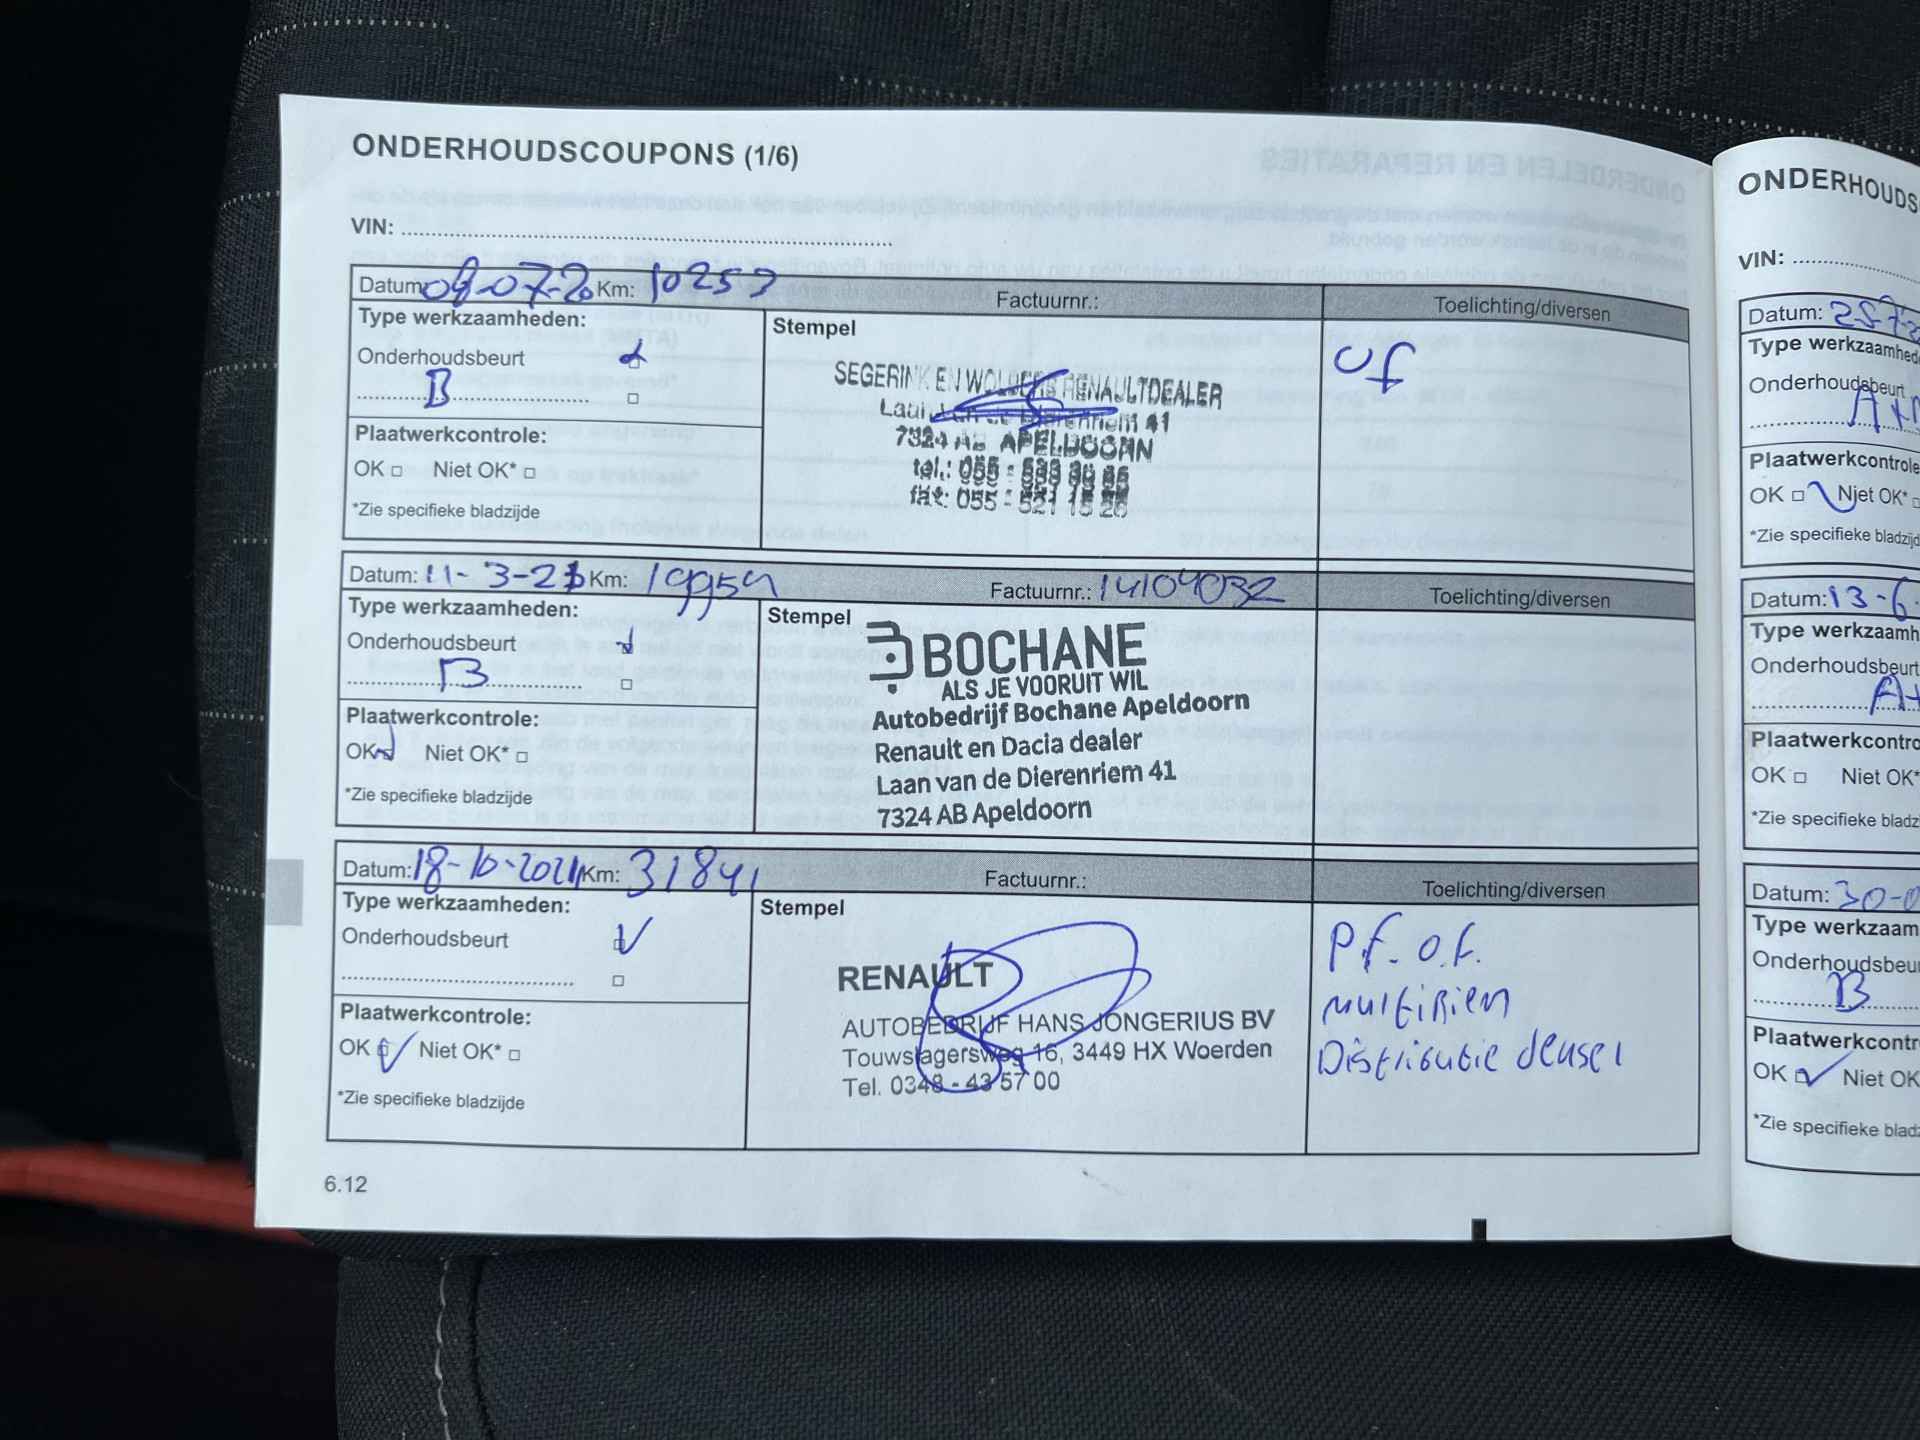 ONDERHOUDSCOUPONS (1/6)
VIN:
Datum: 09-07-20 Km: 10253 Factuurnr.: Toelichting/diversen
Type werkzaamheden:
Onderhoudsbeurt
B
Plaatwerkcontrole:
OK Niet OK*
*Zie specifieke bladzijde
Stempel
SEGERINK EN WOLBERS RENAULTDEALER
Laan van de Dierenriem 41
7324 AB APELDOORN
fax: 055 - 521 15 26
of
Datum: 11-3-21 Km: 19959 Factuurnr.: 14104032 Toelichting/diversen
Type werkzaamheden:
Onderhoudsbeurt
B
Plaatwerkcontrole:
OK Niet OK*
*Zie specifieke bladzijde
Stempel
BOCHANE
ALS JE VOORUIT WIL
Autobedrijf Bochane Apeldoorn
Renault en Dacia dealer
Laan van de Dierenriem 41
7324 AB Apeldoorn
Datum: 18-10-2021 Km: 31841 Factuurnr.: Toelichting/diversen
Type werkzaamheden:
Onderhoudsbeurt
Plaatwerkcontrole:
OK Niet OK*
*Zie specifieke bladzijde
Stempel
RENAULT
AUTOBEDRIJF HANS JONGERIUS BV
Touwslagersweg 16, 3449 HX Woerden
Tel. 0348 - 43 57 00
Pf. o.f.
multiriem
Distributie deksel
6.12
ONDERHOUDS
VIN:
Datum:
Type werkzaamhede
Onderhoudsbeurt
Plaatwerkcontrole
OK Niet OK*
*Zie specifieke bladzijd
Datum: 13-6-
Type werkzaamh
Onderhoudsbeurt
A+
Plaatwerkcontro
OK Niet OK*
*Zie specifieke bladz
Datum: 30-0
Type werkzaam
Onderhoudsbeu
B
Plaatwerkcontr
OK Niet OK
*Zie specifieke blad